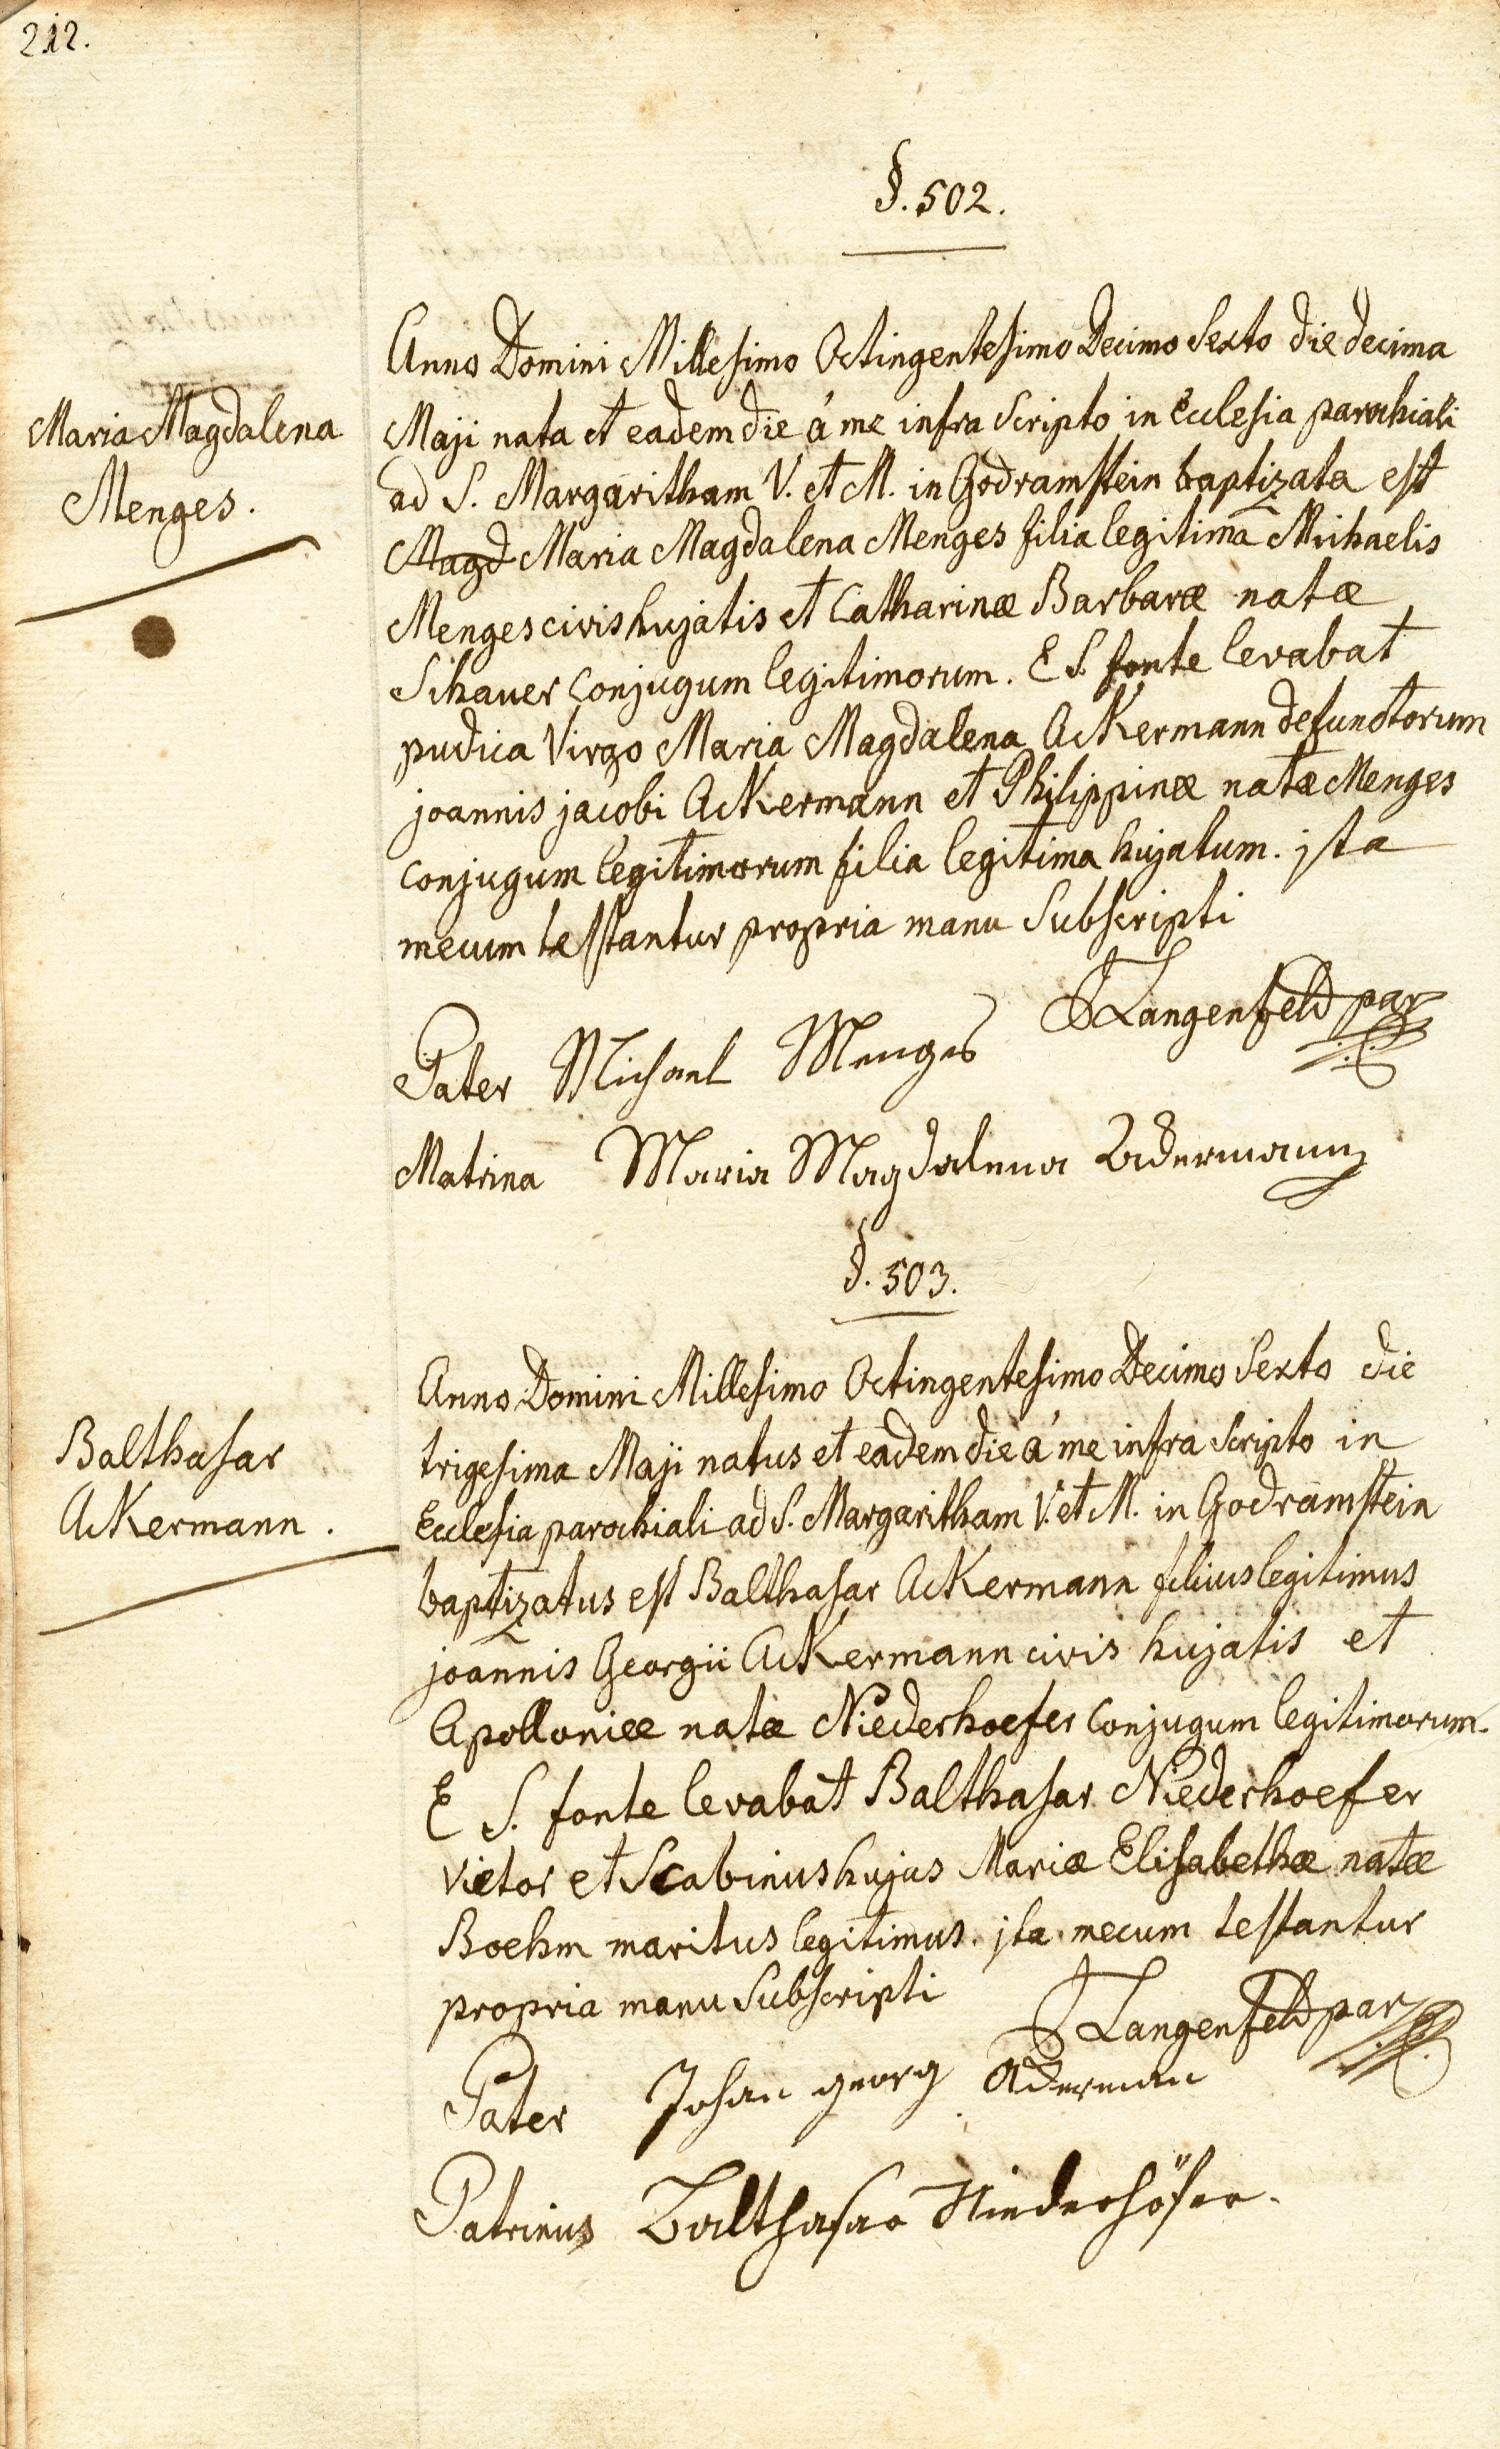 212.
§. 502.
Anno Domini Millesimo Octingentesimo Decimo Sexto die decima
Maria Magdalena
Menges.
Maji nata et eadem die á me infra Scripto in Ecclesia parochiali
ad S. Margaritham V. et M. in Godramstein baptizata est
Magd Maria Magdalena Menges filia legitima Michaelis
Menges civis hujatis et Catharinæ Barbaræ natæ
Schauer Conjugum legitimorum. E S. fonte levabat
pudica Virgo Maria Magdalena Ackermann defunctorum
joannis jacobi Ackermann et Philippinæ natæ Menges
Conjugum legitimorum filia legitima hujatum. jta
mecum testantur propria manu Subscripti
Langenfeld par
Pater Michael Menges
Matrina Maria Magdalena Ackermann
§. 503.
Anno Domini Millesimo Octingentesimo Decimo Sexto die
Balthasar
Ackermann.
trigesima Maji natus et eadem die á me infra Scripto in
Ecclesia parochiali ad S. Margaritham V. et M. in Godramstein
baptizatus est Balthasar Ackermann filius legitimus
joannis Georgii Ackermann civis hujatis et
Apolloniæ natæ Niederhoefer Conjugum legitimorum.
E S. fonte levabat Balthasar Niederhoefer
Vietor et Scabinus hujas Mariæ Elisabethæ natæ
Boehm maritus legitimus. jta mecum testantur
propria manu Subscripti
Langenfeld par
Pater Johan georg Ackerman
Patrinus Balthasar Niederhöfer.